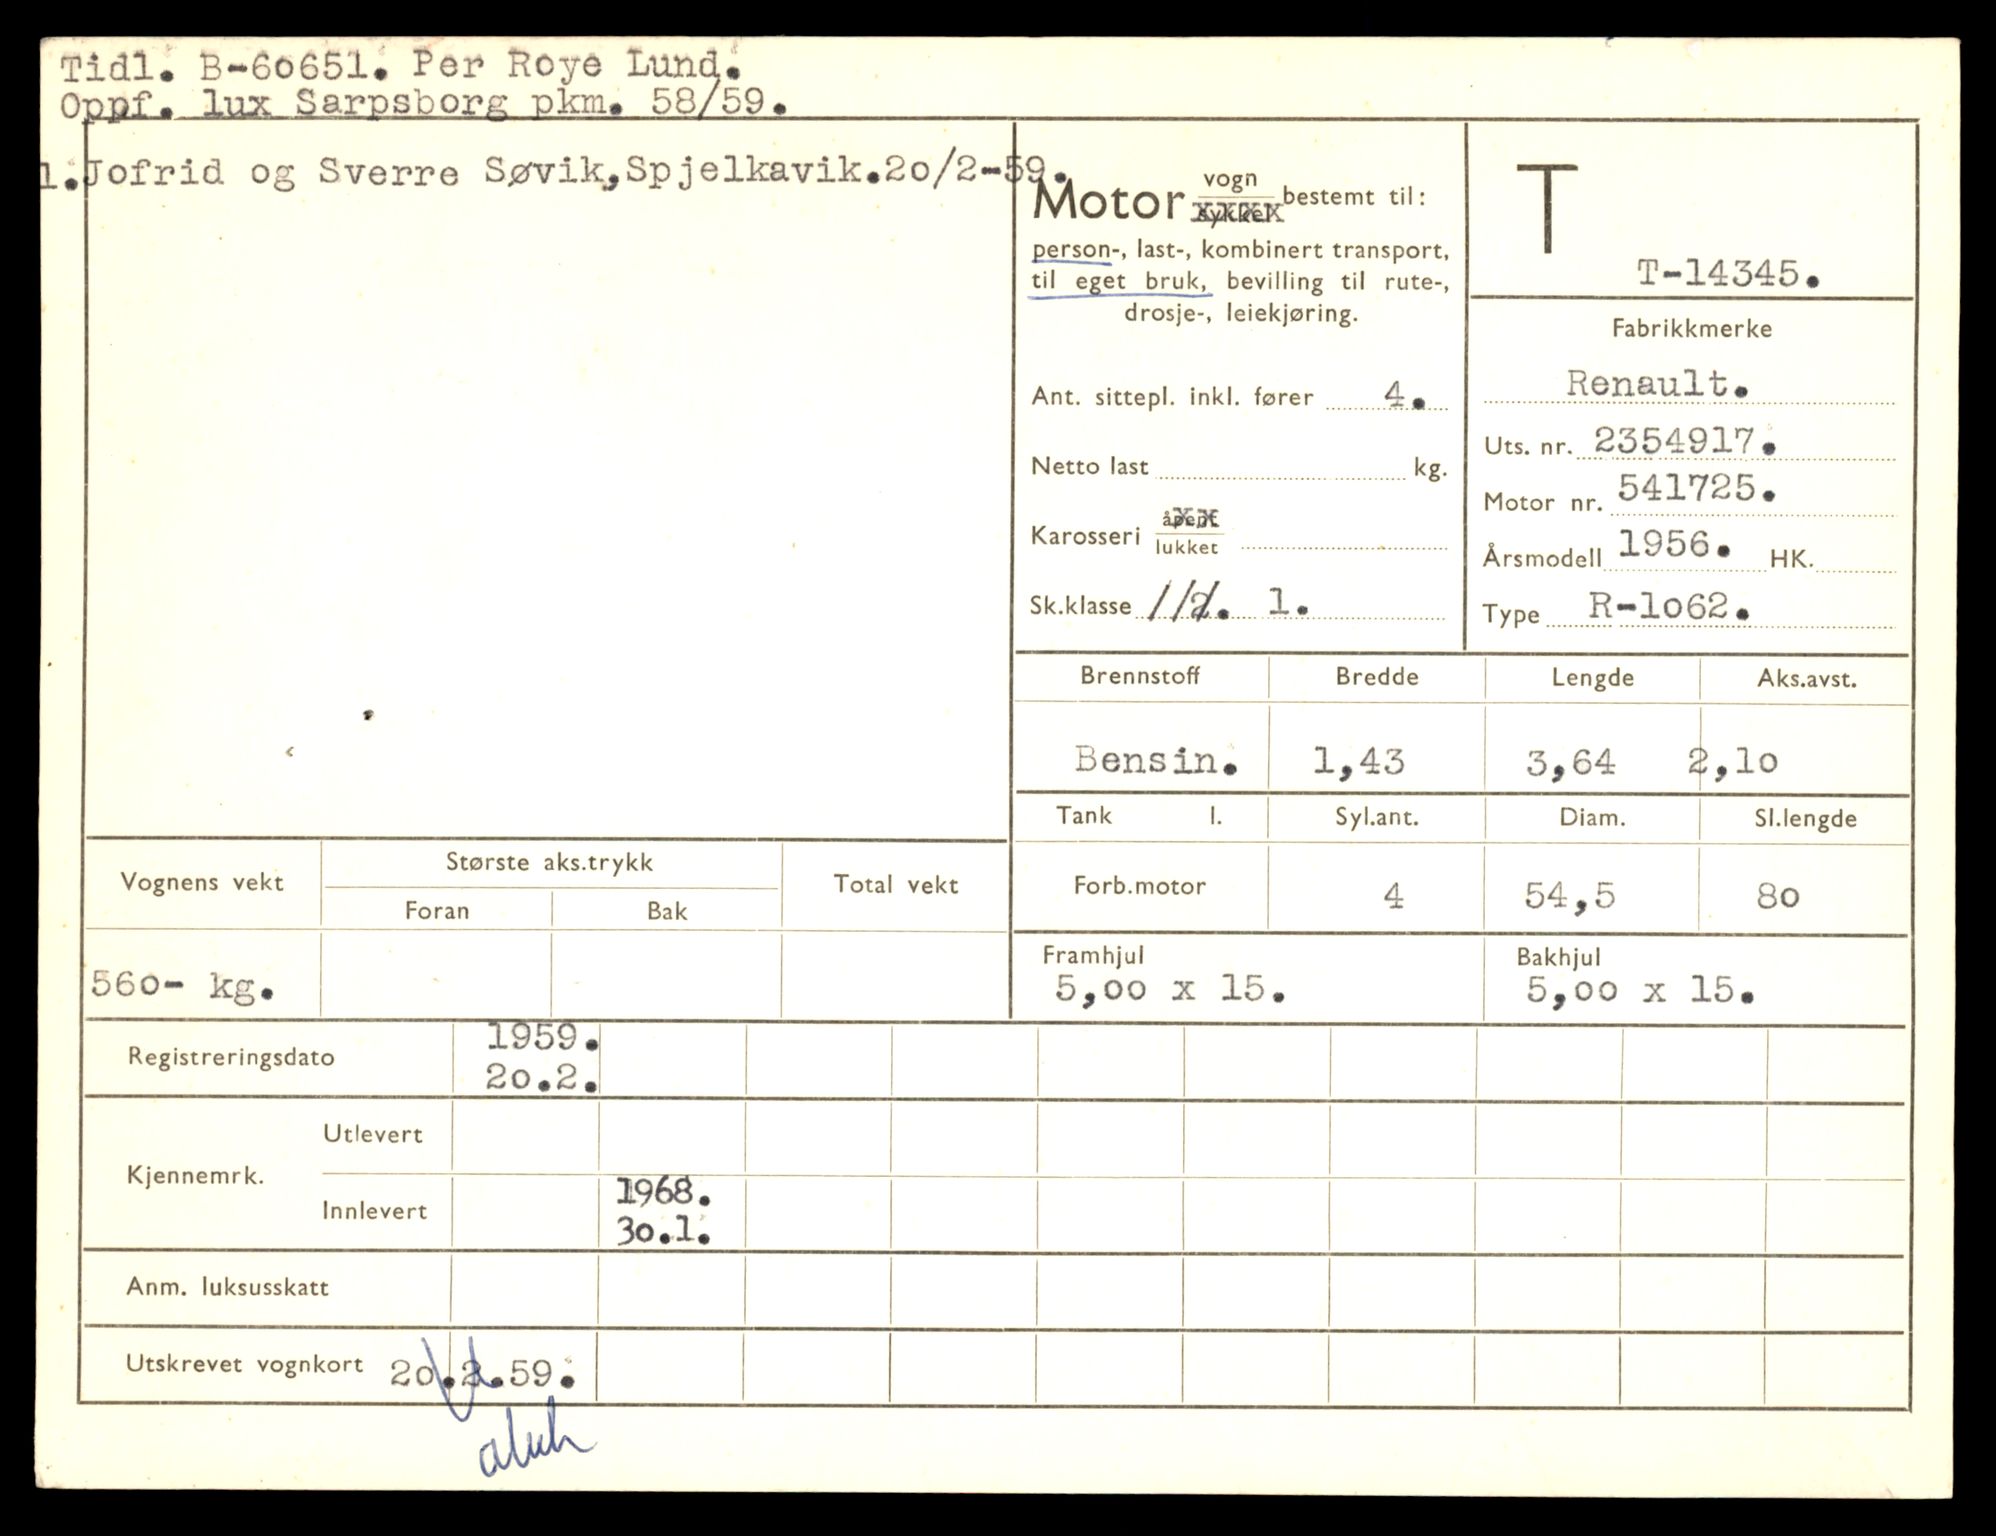 Tidl. B-60651. Per Roye Lund.
Oppf. lux Sarpsborg pkm. 58/59.
1. Jofrid og Sverre Søvik, Spjelkavik. 20/2-59.
Motor vogn sykkel bestemt til:
person-, last-, kombinert transport,
til eget bruk, bevilling til rute-,
drosje-, leiekjøring.
Ant. sittepl. inkl. fører 4.
Netto last kg.
Karosseri åpent lukket
Sk.klasse 1/2. 1.
T
T-14345.
Fabrikkmerke
Renault.
Uts. nr. 2354917.
Motor nr. 541725.
Årsmodell 1956. HK.
Type R-1062.
Brennstoff Bredde Lengde Aks.avst.
Bensin. 1,43 3,64 2,10
Tank l. Syl.ant. Diam. Sl.lengde
Forb.motor 4 54,5 80
Framhjul Bakhjul
5,00 x 15. 5,00 x 15.
Vognens vekt Største aks.trykk Total vekt
Foran Bak
560- kg.
Registreringsdato 1959.
20.2.
Kjennemrk.
Utlevert
Innlevert 1968.
30.1.
Anm. luksusskatt
Utskrevet vognkort 20.2.59.